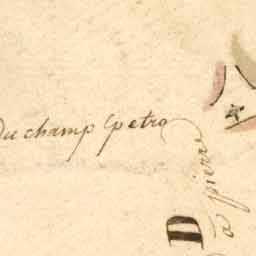 du champ petro
D
à pierre